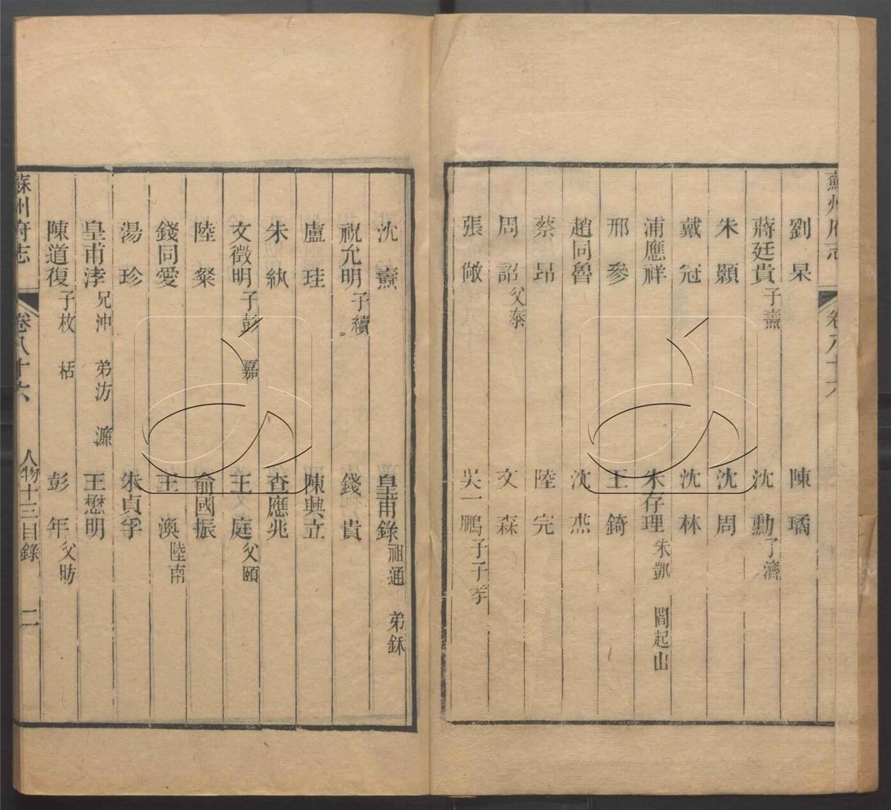 蘇州府志 卷八十六
劉杲 陳璚
蔣廷貴子燾 沈勳子濟
朱顥 沈周
戴冠 沈林
浦應祥 朱存理朱凱 閻起山
邢參 王錡
趙同魯 沈杰
蔡昂 陸完
周詔父泰 文森
張敞 吳一鵬子子孝
沈燾 皇甫錄祖通 弟鈢
祝允明子續 錢貴
盧㙺 陳興立
朱紈 查應兆
文徵明子彭 嘉 王庭父頤
陸粲 俞國振
錢同愛 王渙陸南
湯珍 朱貞孚
皇甫涍兄沖 弟汸 濂 王懋明
陳道復子枚 栝 彭年父昉
蘇州府志 卷八十六 人物十三目錄 二